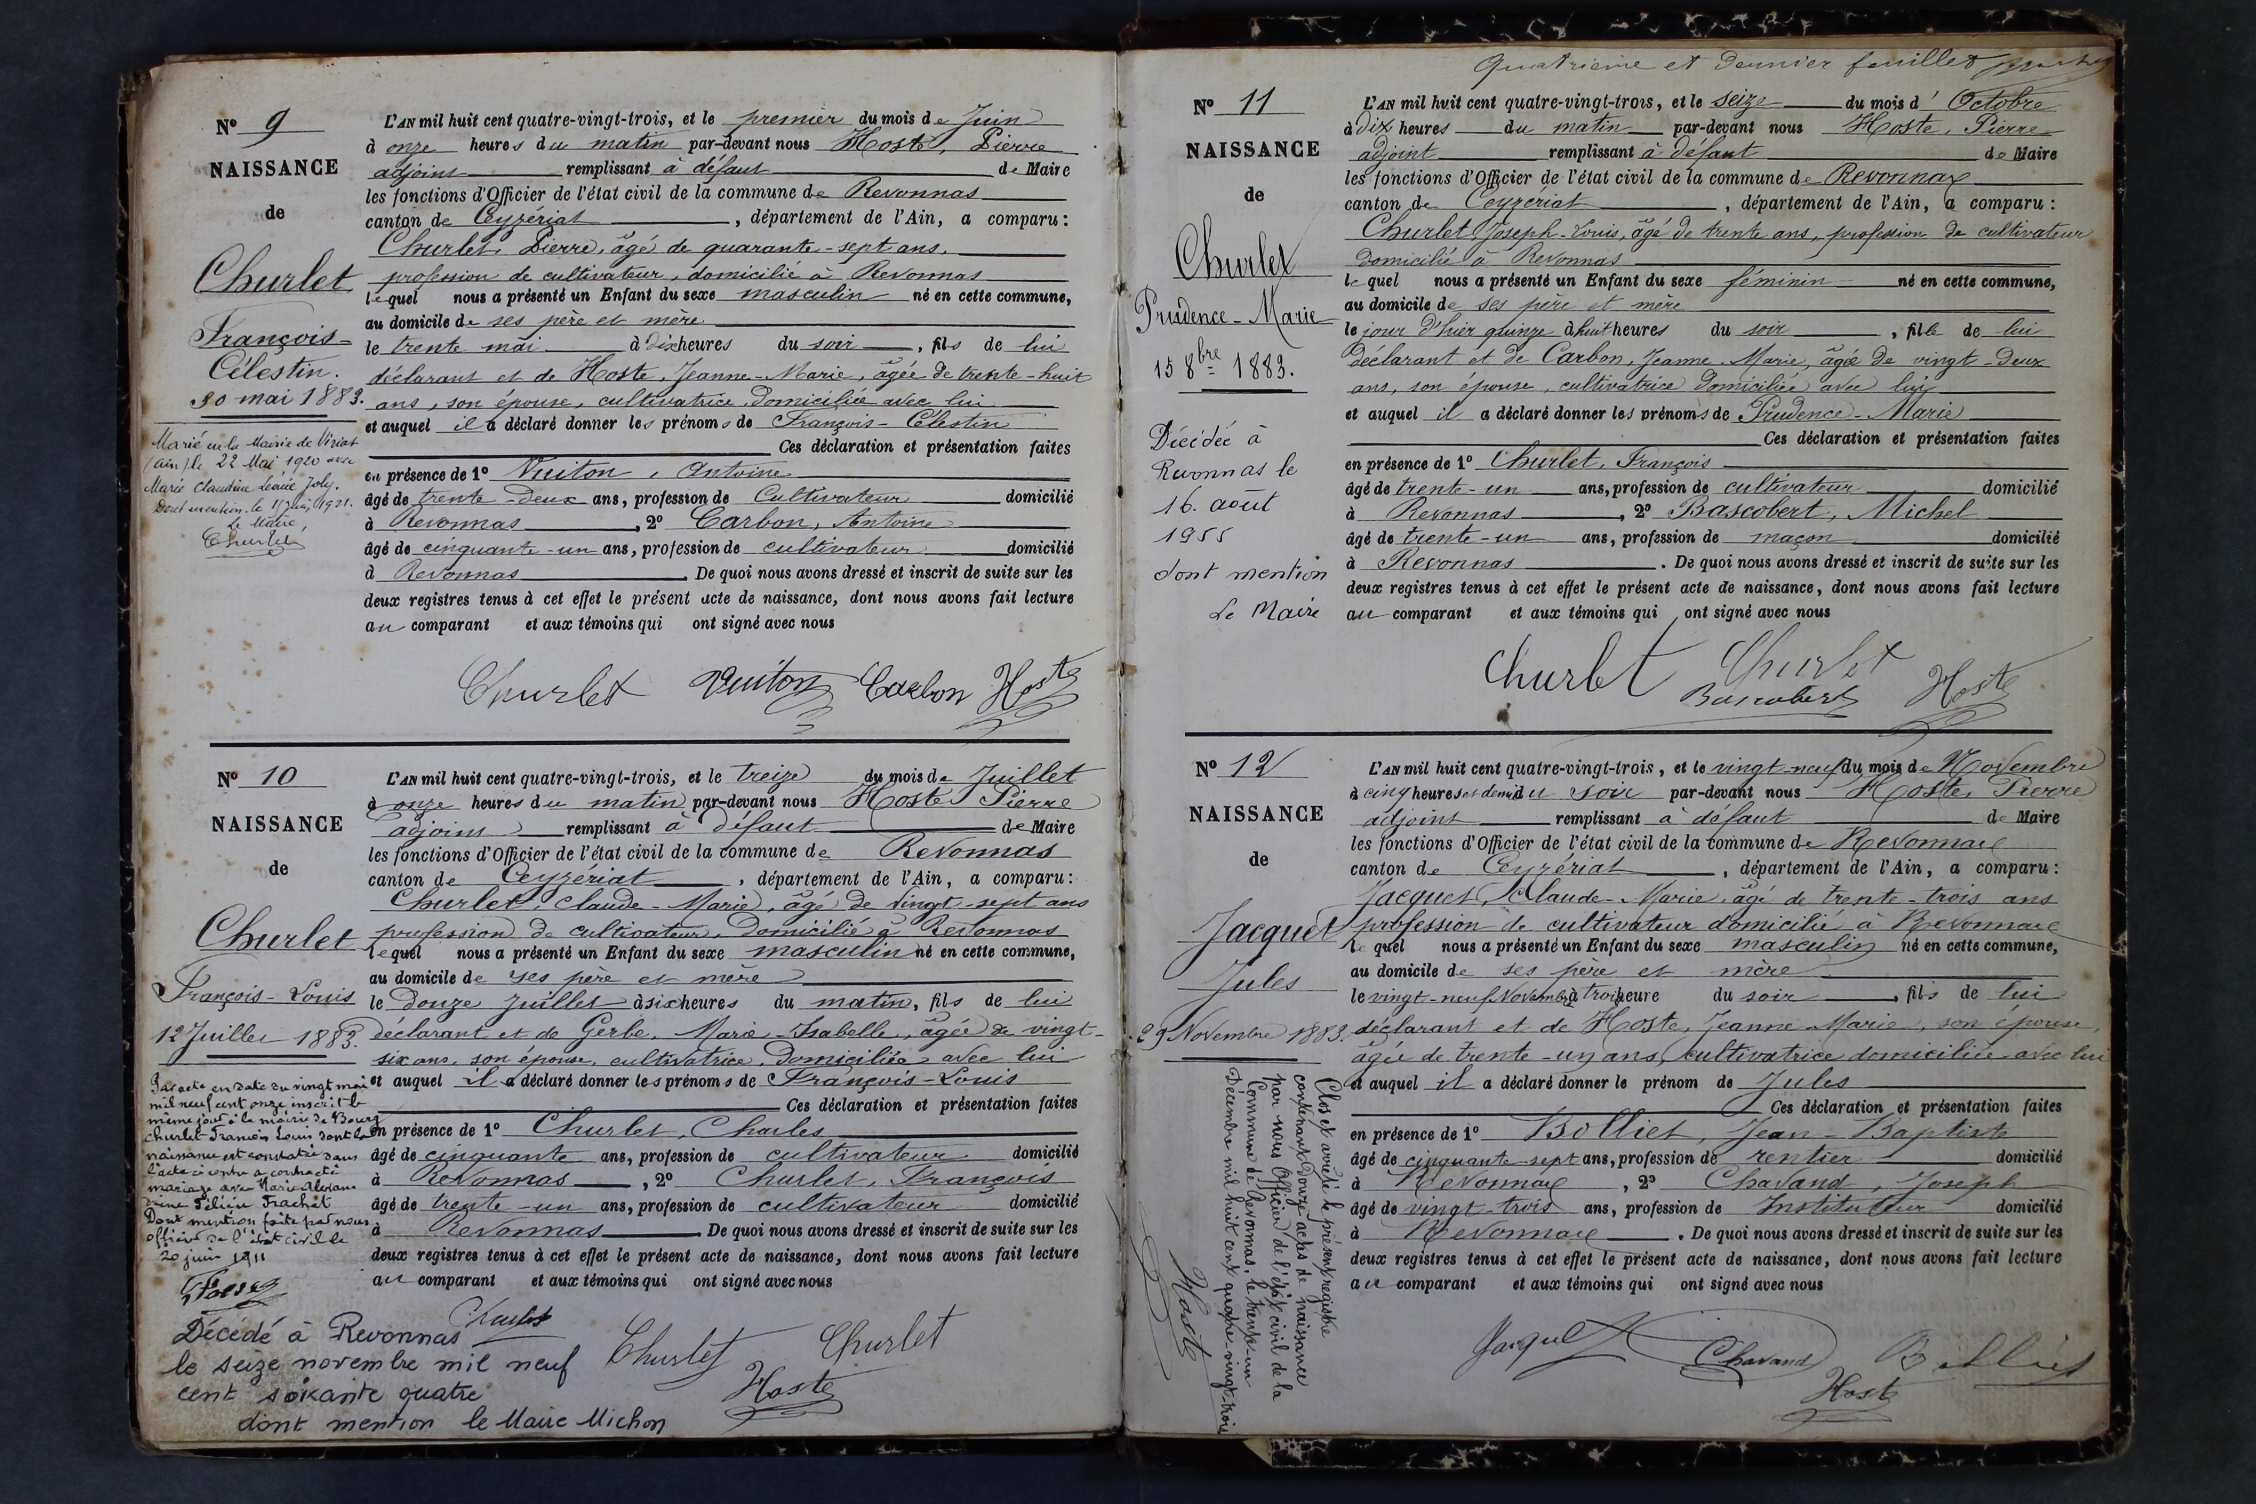 Nº 9
NAISSANCE
de
Churlet
François-
Célestin.
30 mai 1883.
Marié en la Mairie de Viriat
(ain) le 22 Mai 1920 avec
Marie Claudine Léonie Joly.
Dont mention le 1921.
Le Maire,
Churlet
L'AN mil huit cent quatre-vingt-trois, et le premier du mois de Juin
à onze heures du matin par-devant nous Hoste, Pierre
adjoint remplissant à défaut de Maire
les fonctions d'Officier de l'état civil de la commune de Revonnas
canton de Ceyzériat, département de l'Ain, a comparu :
Churlet, Pierre, âgé de quarante-sept ans,
profession de cultivateur, domicilié à Revonnas
lequel nous a présenté un Enfant du sexe masculin né en cette commune,
au domicile de ses père et mère
le trente mai à dix heures du soir, fils de lui
déclarant et de Hoste, Jeanne-Marie, âgée de trente-huit
ans, son épouse, cultivatrice, domiciliée avec lui
et auquel il a déclaré donner les prénoms de François-Célestin
Ces déclaration et présentation faites
en présence de 1º Vuiton, Antoine
âgé de trente-deux ans, profession de Cultivateur domicilié
à Revonnas, 2º Carbon, Antoine
âgé de cinquante-un ans, profession de cultivateur domicilié
à Revonnas. De quoi nous avons dressé et inscrit de suite sur les
deux registres tenus à cet effet le présent acte de naissance, dont nous avons fait lecture
au comparant et aux témoins qui ont signé avec nous
Churlet Vuiton Carbon Hoste
Nº 10
NAISSANCE
de
Churlet
François-Louis
12 Juillet 1883.
Par acte en date du vingt mai
mil neuf cent onze inscrit le
même jour à la mairie de Bourg
Churlet François Louis dont la
naissance est constatée dans
l'acte ci contre a contracté
mariage avec Marie Alexan
drine Félicie Trachet
Dont mention faite par nous
officier de l'état civil le
20 juin 1911
Décédé à Revonnas
le seize novembre mil neuf
cent soixante quatre
dont mention le Maire Michon
L'AN mil huit cent quatre-vingt-trois, et le treize du mois de Juillet
à onze heures du matin par-devant nous Hoste Pierre
adjoint remplissant à défaut de Maire
les fonctions d'Officier de l'état civil de la commune de Revonnas
canton de Ceyzériat, département de l'Ain, a comparu :
Churlet, Claude-Marie, âgé de vingt-sept ans
profession de cultivateur, domicilié à Revonnas
lequel nous a présenté un Enfant du sexe masculin né en cette commune,
au domicile de ses père et mère
le Douze Juillet à six heures du matin, fils de lui
déclarant et de Gerbe, Marie-Isabelle, âgée de vingt-
six ans, son épouse, cultivatrice, domiciliée avec lui
et auquel il a déclaré donner les prénoms de François-Louis
Ces déclaration et présentation faites
en présence de 1º Churlet, Charles
âgé de cinquante ans, profession de cultivateur domicilié
à Revonnas, 2º Churlet, François
âgé de trente-un ans, profession de cultivateur domicilié
à Revonnas. De quoi nous avons dressé et inscrit de suite sur les
deux registres tenus à cet effet le présent acte de naissance, dont nous avons fait lecture
au comparant et aux témoins qui ont signé avec nous
Churlet Churlet Churlet
Hoste
Quatrième et dernier feuillet
Nº 11
NAISSANCE
de
Churlet
Prudence-Marie
15 8bre 1883.
Décédée à
Revonnas le
16 août
1955
dont mention
Le Maire
L'AN mil huit cent quatre-vingt-trois, et le seize du mois d'Octobre
à dix heures du matin par-devant nous Hoste, Pierre
adjoint remplissant à défaut de Maire
les fonctions d'Officier de l'état civil de la commune de Revonnas
canton de Ceyzériat, département de l'Ain, a comparu :
Churlet Joseph-Louis, âgé de trente ans, profession de cultivateur
domicilié à Revonnas
lequel nous a présenté un Enfant du sexe féminin né en cette commune,
au domicile de ses père et mère
le jour d'hier quinze à huit heures du soir, fille de lui
déclarant et de Carbon, Jeanne-Marie, âgée de vingt-deux
ans, son épouse, cultivatrice domiciliée avec lui
et auquel il a déclaré donner les prénoms de Prudence-Marie
Ces déclaration et présentation faites
en présence de 1º Churlet, François
âgé de trente-un ans, profession de cultivateur domicilié
à Revonnas, 2º Bascobert, Michel
âgé de trente-un ans, profession de maçon domicilié
à Revonnas. De quoi nous avons dressé et inscrit de suite sur les
deux registres tenus à cet effet le présent acte de naissance, dont nous avons fait lecture
au comparant et aux témoins qui ont signé avec nous
Churlet Churlet
Bascobert Hoste
Nº 12
NAISSANCE
de
Jacquet
Jules
29 Novembre 1883.
Clos et arrêté le présent registre
contenant douze actes de naissance
par nous Officier de l'état civil de la
Commune de Revonnas, le trente-un
Décembre mil huit cent quatre-vingt-trois
Hoste
L'AN mil huit cent quatre-vingt-trois, et le vingt-neuf du mois de Novembre
à cinq heures et demi du soir par-devant nous Hoste, Pierre
adjoint remplissant à défaut de Maire
les fonctions d'Officier de l'état civil de la commune de Revonnas
canton de Ceyzériat, département de l'Ain, a comparu :
Jacquet, Claude-Marie, âgé de trente-trois ans
profession de cultivateur domicilié à Revonnas
lequel nous a présenté un Enfant du sexe masculin né en cette commune,
au domicile de ses père et mère
le vingt-neuf Novembre à trois heure du soir, fils de lui
déclarant et de Hoste, Jeanne-Marie, son épouse,
âgée de trente-un ans, cultivatrice domiciliée avec lui
et auquel il a déclaré donner le prénom de Jules
Ces déclaration et présentation faites
en présence de 1º Bolliet, Jean-Baptiste
âgé de cinquante-sept ans, profession de rentier domicilié
à Revonnas, 2º Chavand, Joseph
âgé de vingt-trois ans, profession de Instituteur domicilié
à Revonnas. De quoi nous avons dressé et inscrit de suite sur les
deux registres tenus à cet effet le présent acte de naissance, dont nous avons fait lecture
au comparant et aux témoins qui ont signé avec nous
Jacquet Chavand Bolliet
Hoste